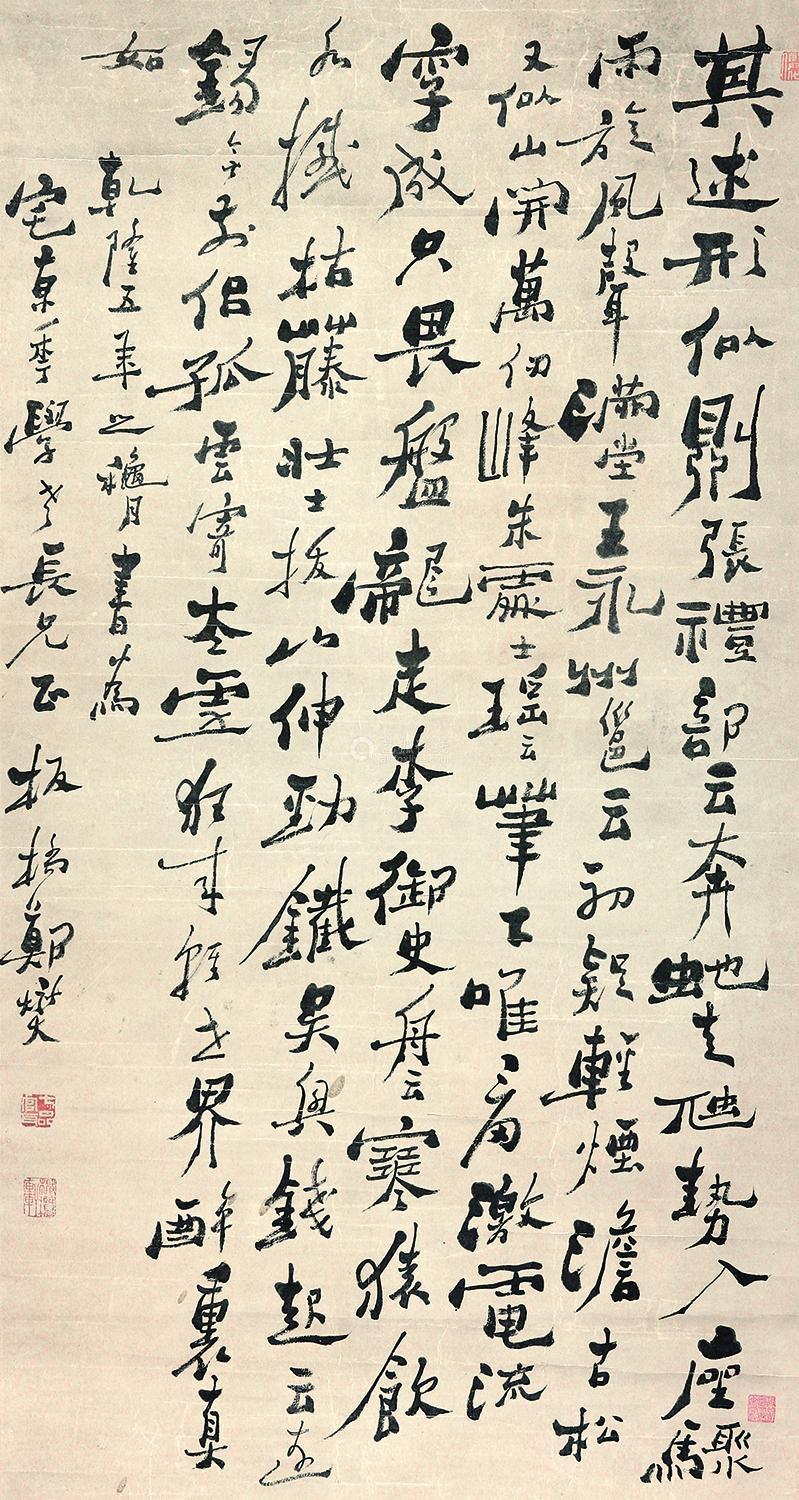 其述形似則張禮部云奔虵走虺勢入座驟
雨旋風聲滿堂王永州邕云初疑輕煙澹古松
又似山開萬仞峰朱處士瑤云筆下唯看激電流
字成只畏盤龍走李御史舟云寒猿飲
水撼枯藤壯士拔山伸勁鐵吳興錢起云遠
錫無前侶孤雲寄太虛狂來輕世界醉裏真
如
乾隆五年之龝月書為
學老長兄正 板橋鄭燮